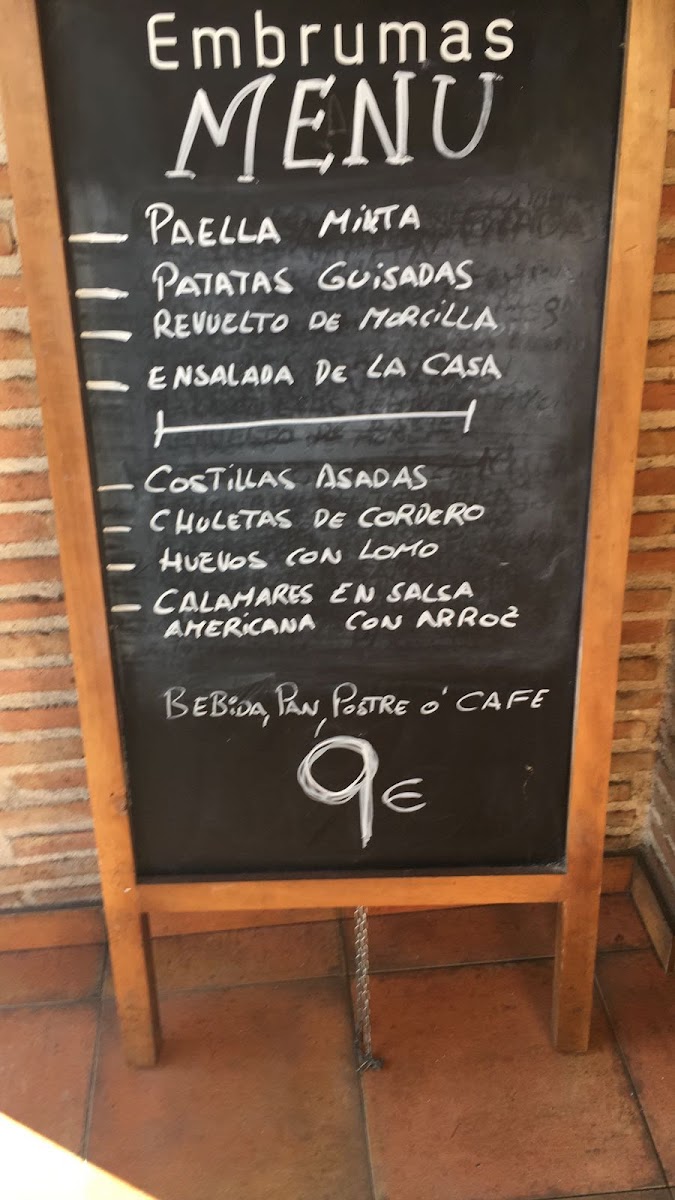 Embrumas
MENU
— PAELLA MIXTA
— PATATAS GUISADAS
— REVUELTO DE MORCILLA
— ENSALADA DE LA CASA
— COSTILLAS ASADAS
— CHULETAS DE CORDERO
— HUEVOS CON LOMO
— CALAMARES EN SALSA
AMERICANA CON ARROZ
BEBIDA, PAN, POSTRE O' CAFE
9€